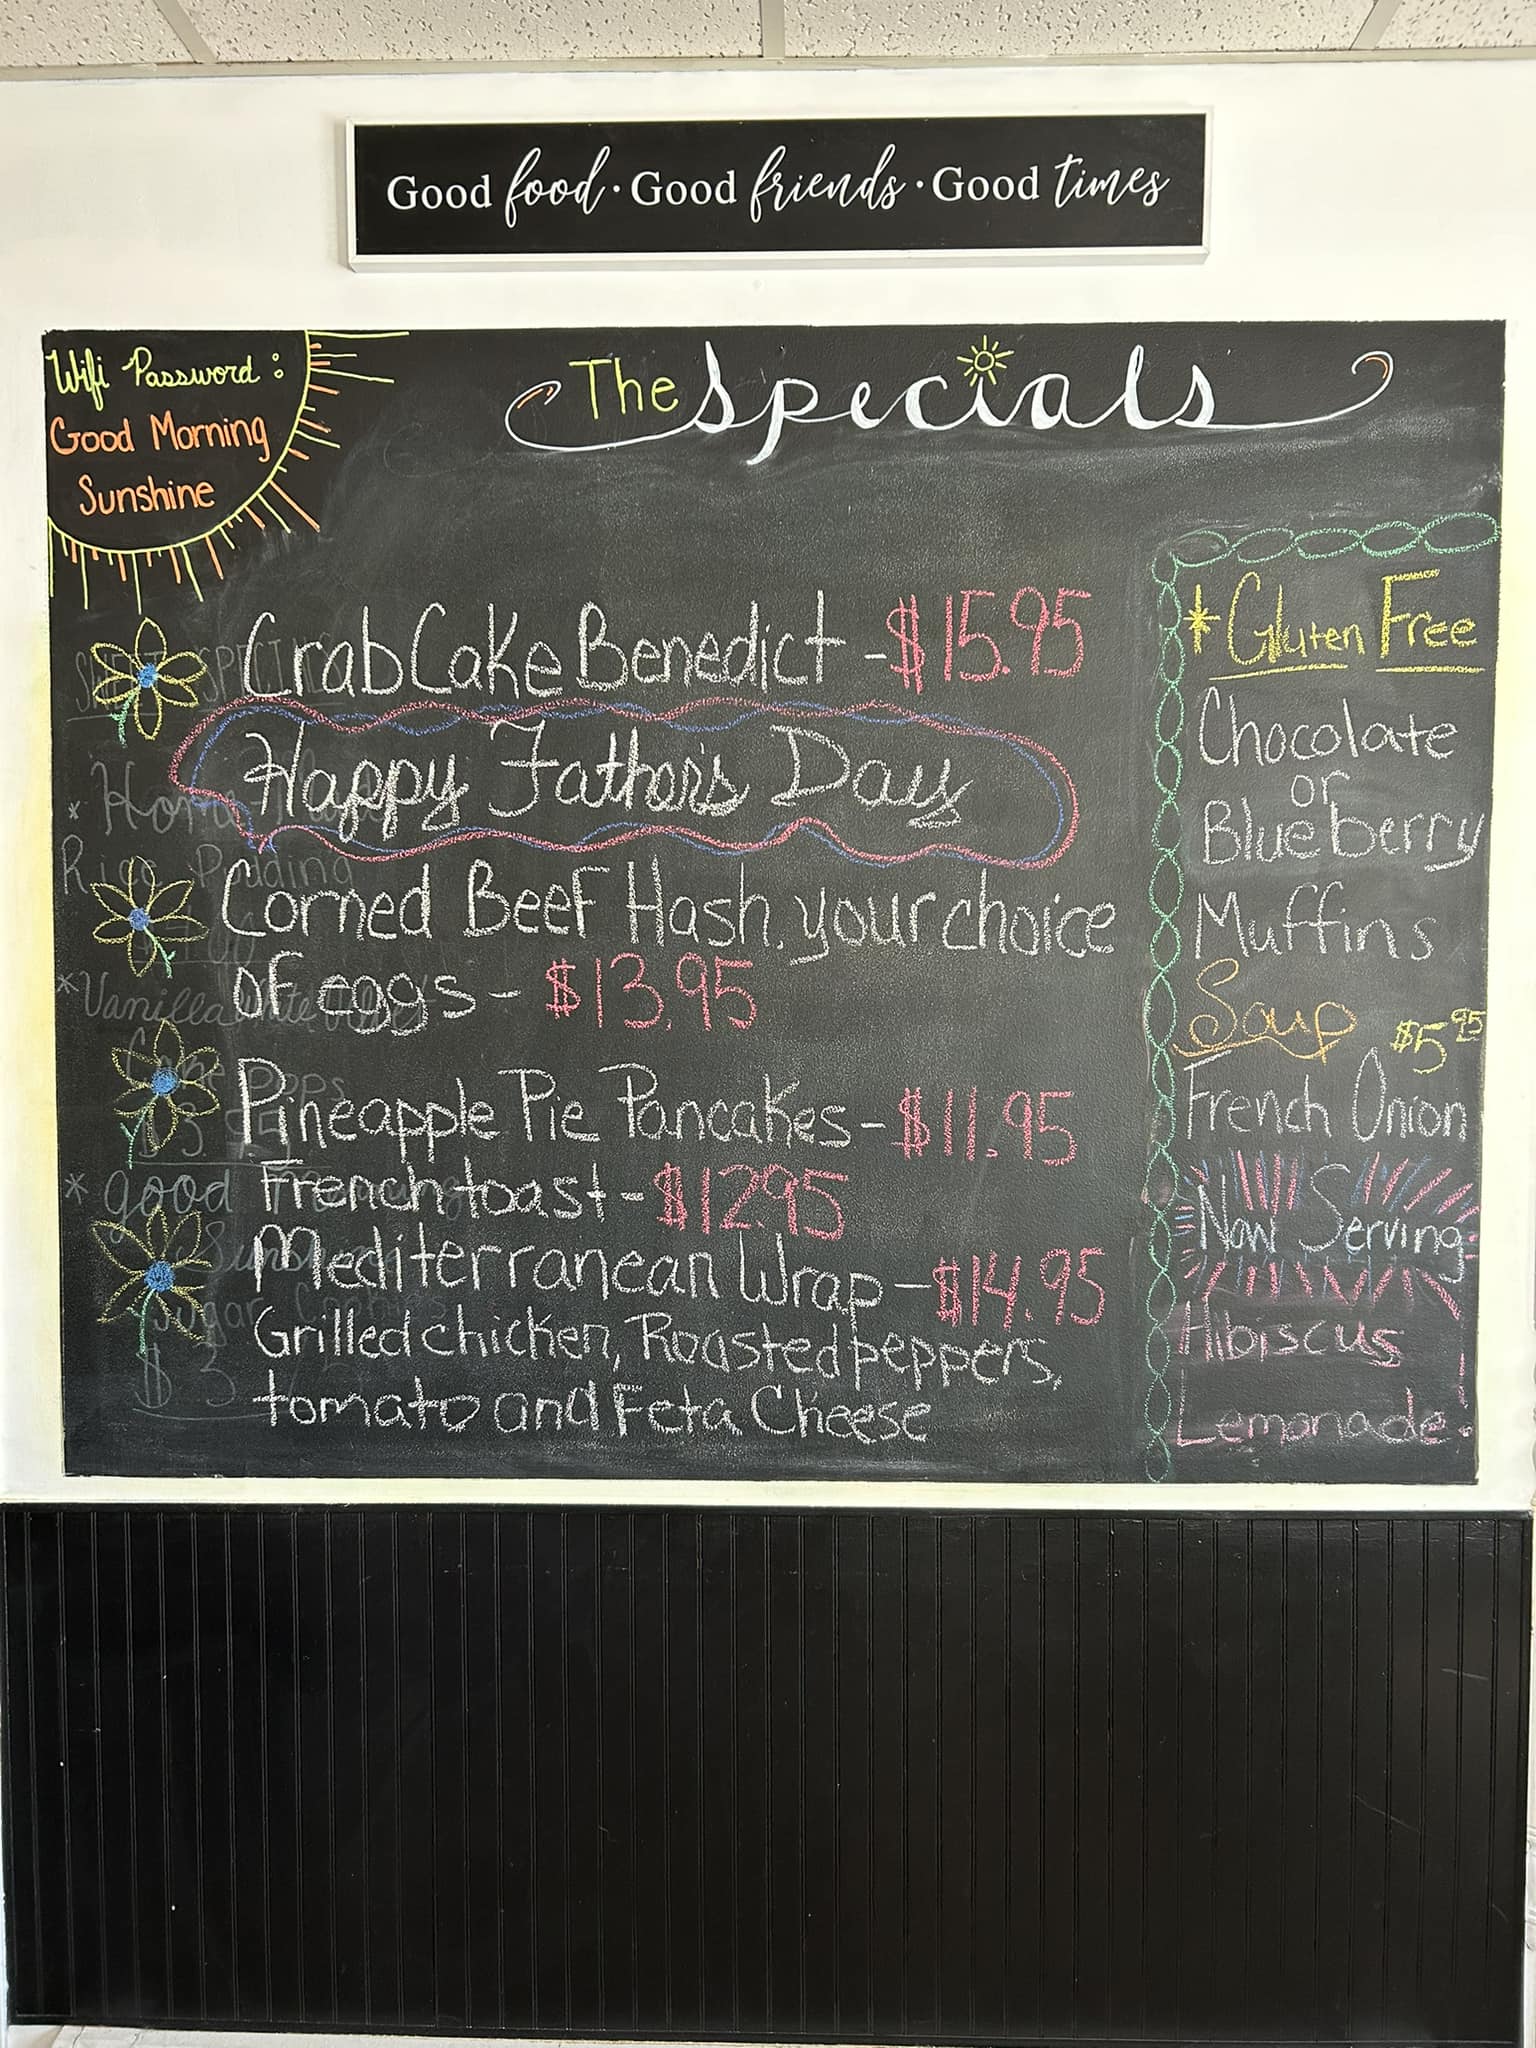 Good food · Good friends · Good times
Wifi Password:
Good Morning
Sunshine
The Specials
Crab Cake Benedict - $15.95
Happy Father's Day
Corned Beef Hash, your choice
of eggs - $13.95
Pineapple Pie Pancakes - $11.95
French toast - $12.95
Mediterranean Wrap - $14.95
Grilled chicken, Roasted peppers,
tomato and Feta Cheese
* Home
Rice Pudding
* Vanilla
Cake Pops
$3.75
* good
Sunshine
Sugar
* Gluten Free
Chocolate
or
Blueberry
Muffins
Soup $5.95
French Onion
Now Serving
Hibiscus
Lemonade!